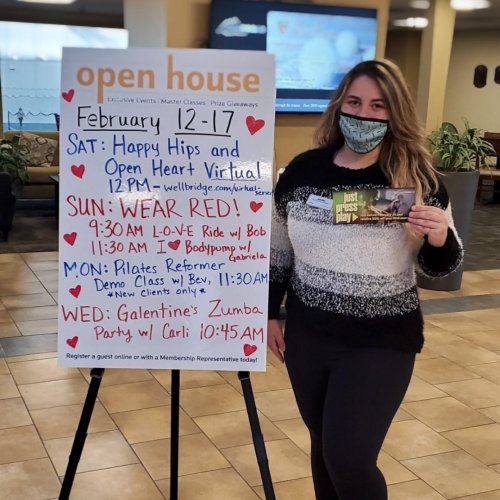 open house
Exclusive Events · Master Classes · Prize Giveaways
February 12-17
SAT: Happy Hips and
Open Heart Virtual
12 PM - wellbridge.com/virtual-
series
SUN: WEAR RED!
9:30 AM L-O-V-E Ride w/ Bob
11:30 AM I ♥ Bodypump w/
Gabriela
MON: Pilates Reformer
Demo Class w/ Bev, 11:30 AM
*New Clients only*
WED: Galentine's Zumba
Party w/ Carli 10:45 AM
Register a guest online or with a Membership Representative today!
just
press
play